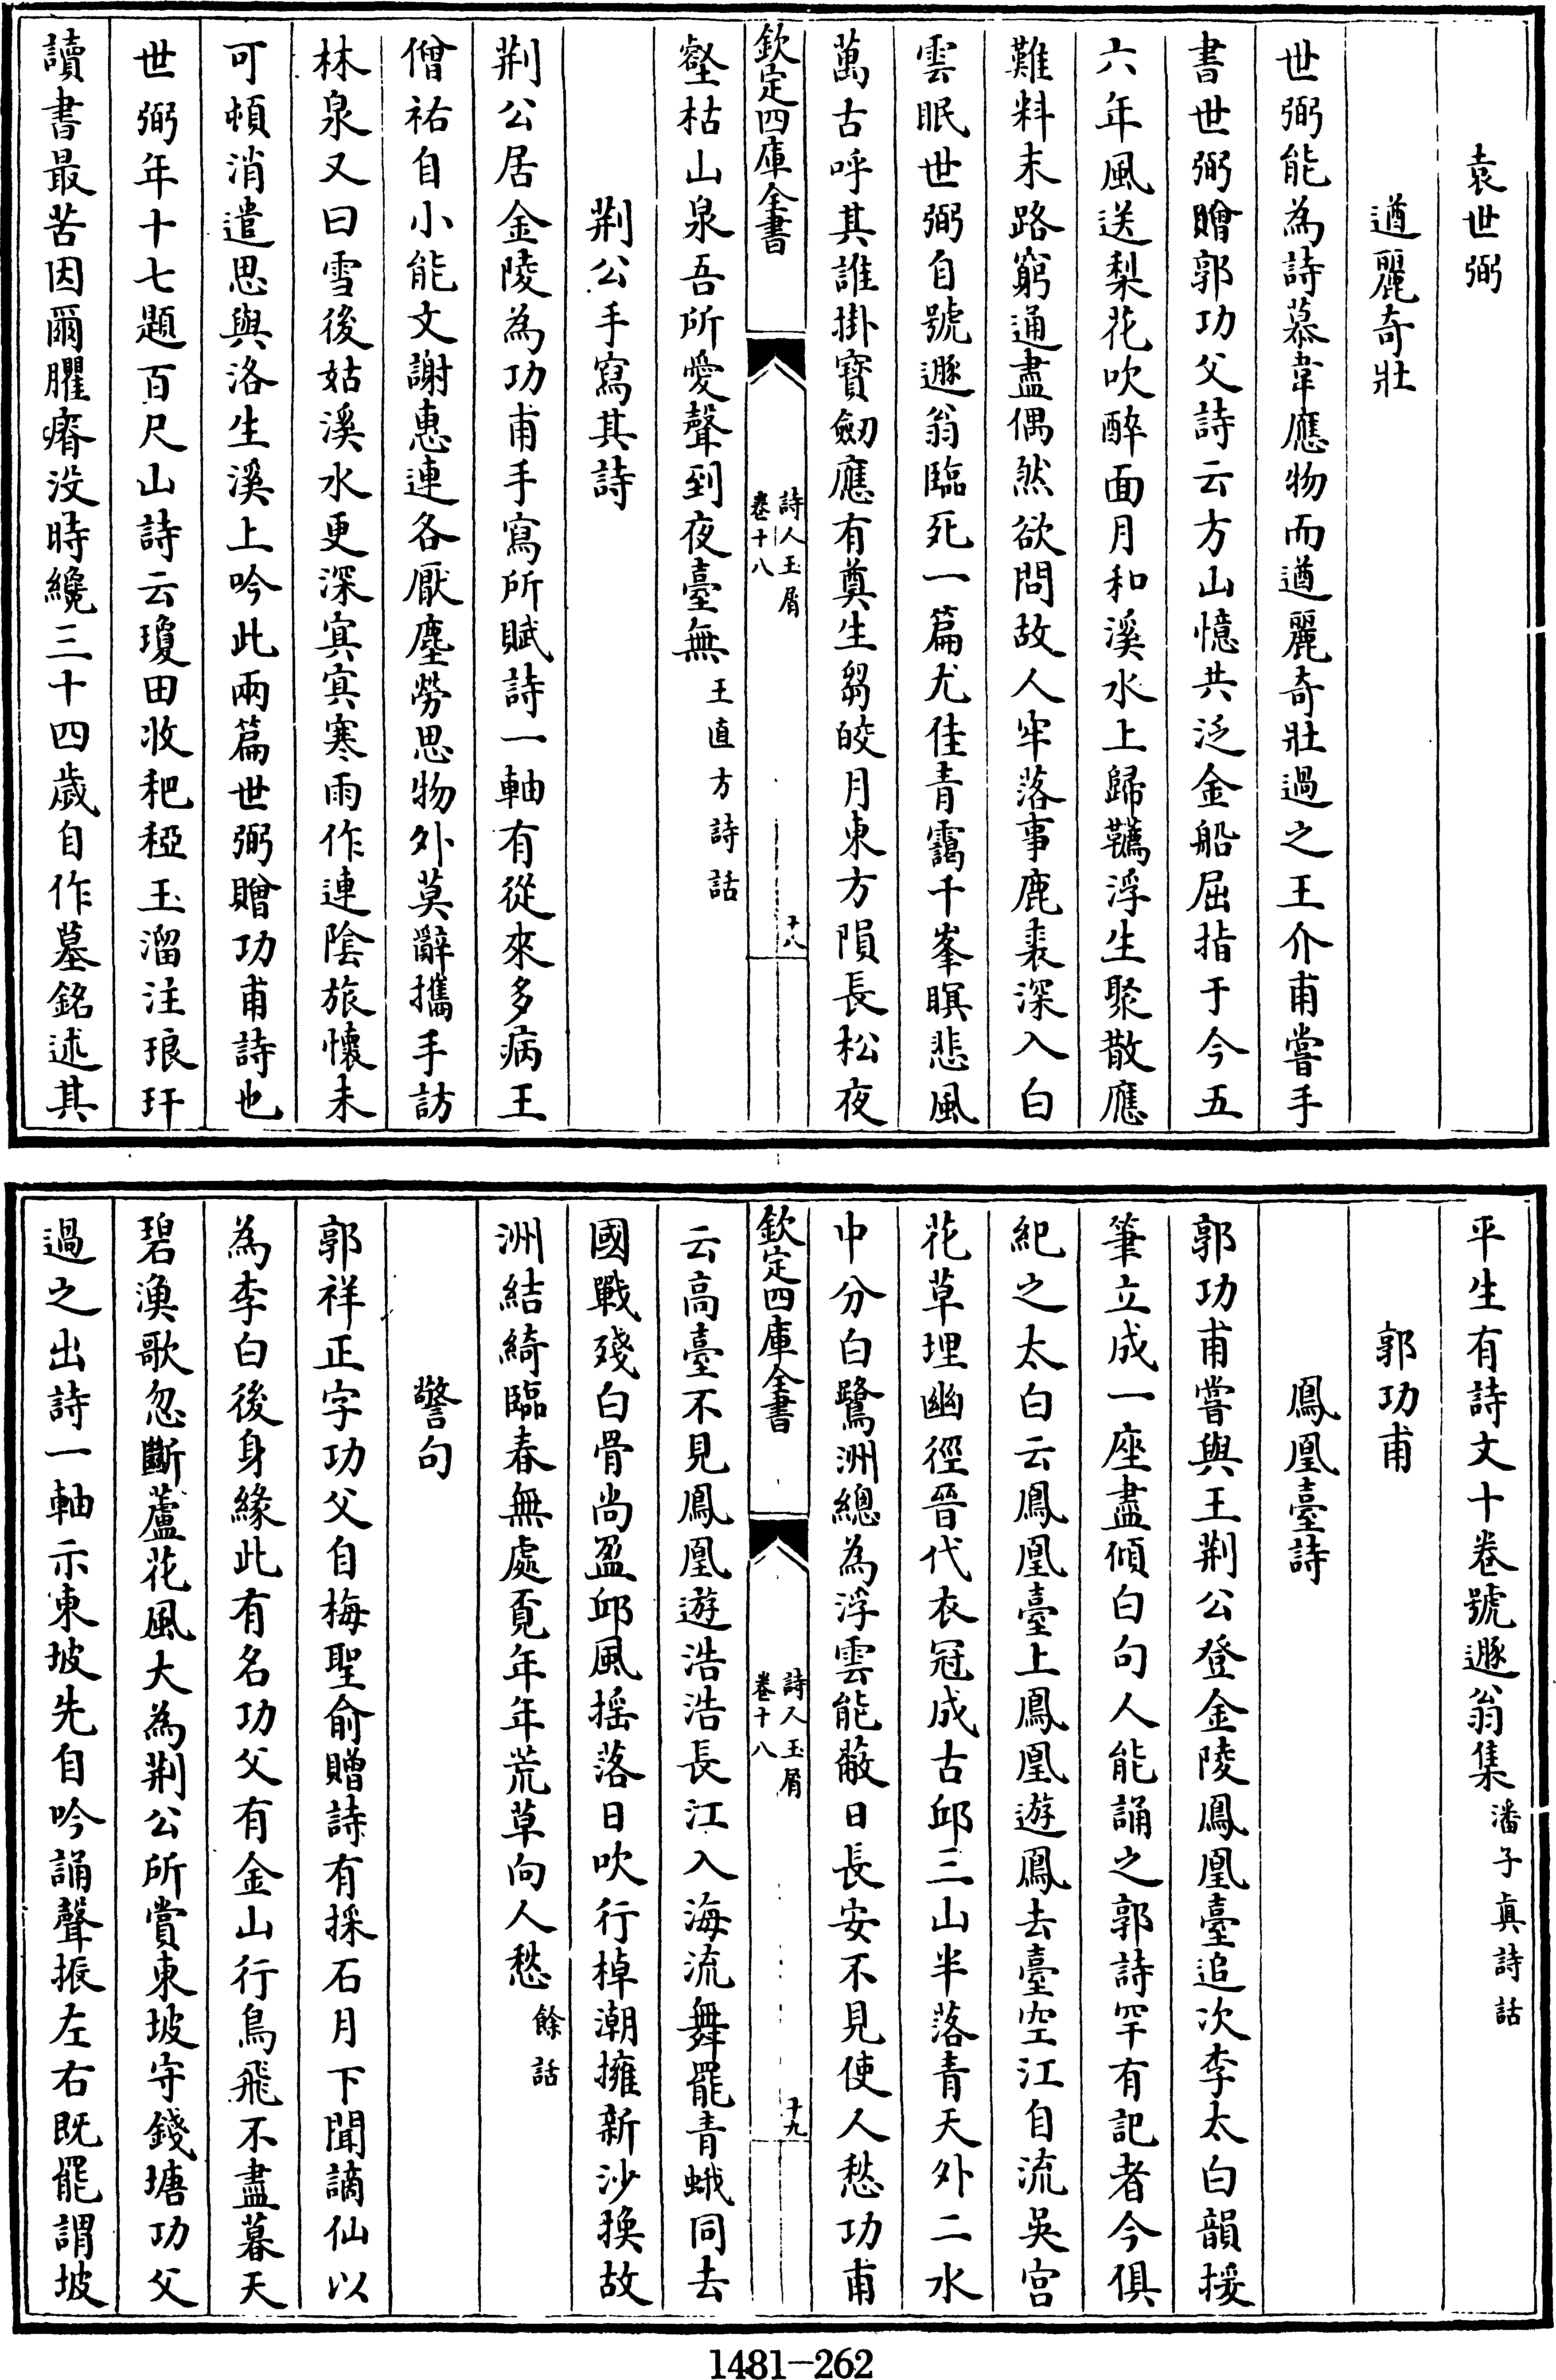 袁世弼
遒麗奇壯
世弼能為詩慕韋應物而遒麗奇壯過之王介甫嘗手
書世弼贈郭功父詩云方山憶共泛金船屈指于今五
六年風送梨花吹醉面月和溪水上歸韉浮生聚散應
難料末路窮通盡偶然欲問故人牢落事鹿裘深入白
雲眠世弼自號遯翁臨死一篇尤佳青靄千峯暝悲風
萬古呼其誰掛寳劒應有奠生芻皎月東方隕長松夜
欽定四庫全書
詩人玉屑
卷十八
十八
壑枯山泉吾所愛聲到夜臺無王直方詩話
荆公手寫其詩
荆公居金陵為功甫手寫所賦詩一軸有從來多病王
僧祐自小能文謝惠連各厭塵勞思物外莫辭攜手訪
林泉又曰雪後姑溪水更深寘寘寒雨作連隂旅懷未
可頓消遣思與洛生溪上吟此兩篇世弼贈功甫詩也
世弼年十七題百尺山詩云瓊田收䄻稏玉溜注琅玕
讀書最苦因爾臞瘠没時纔三十四歲自作墓銘述其
平生有詩文十卷號遯翁集潘子真詩話
郭功甫
鳳凰臺詩
郭功甫嘗與王荆公登金陵鳳凰臺追次李太白韻援
筆立成一座盡傾白句人能誦之郭詩罕有記者今俱
紀之太白云鳳凰臺上鳳凰遊鳳去臺空江自流吳宫
花草埋幽徑晉代衣冠成古邱三山半落青天外二水
中分白鷺洲總為浮雲能蔽日長安不見使人愁功甫
欽定四庫全書
詩人玉屑
卷十八
十九
云高臺不見鳳凰遊浩浩長江入海流舞罷青蛾同去
國戰殘白骨尚盈邱風揺落日吹行棹潮擁新沙換故
洲結綺臨春無處覓年年荒草向人愁餘話
警句
郭祥正字功父自梅聖俞贈詩有採石月下聞謫仙以
為李白後身緣此有名功父有金山行鳥飛不盡暮天
碧漁歌忽斷蘆花風大為荆公所賞東坡守錢塘功父
過之出詩一軸示東坡先自吟誦聲振左右既罷謂坡
1481-262